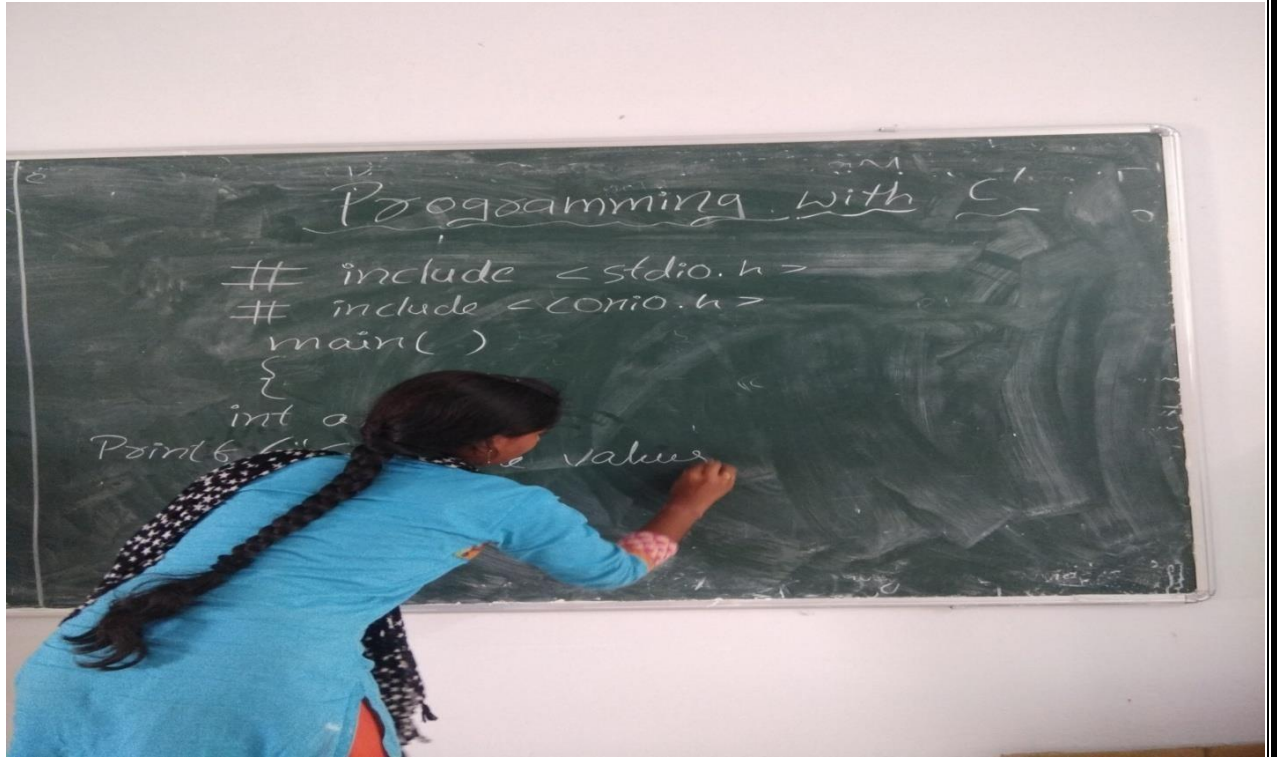 Programming with 'C'
# include <stdio.h>
# include <conio.h>
main( )
{
int a
Printf (" values